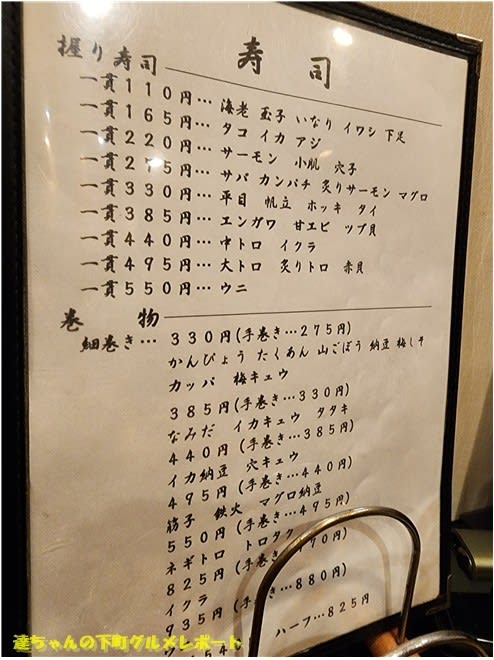 寿司
握り寿司
一貫110円… 海老 玉子 いなり イワシ 下足
一貫165円… タコ イカ アジ
一貫220円… サーモン 小肌 穴子
一貫275円… サバ カンパチ 炙りサーモン マグロ
一貫330円… 平目 帆立 ホッキ タイ
一貫385円… エンガワ 甘エビ ツブ貝
一貫440円… 中トロ イクラ
一貫495円… 大トロ 炙りトロ 赤貝
一貫550円… ウニ
巻物
細巻き… 330円(手巻き…275円)
かんぴょう たくあん 山ごぼう 納豆 梅しそ
カッパ 梅キュウ
385円(手巻き…330円)
なみだ イカキュウ タタキ
440円(手巻き…385円)
イカ納豆 穴キュウ
495円(手巻き…440円)
筋子 鉄火 マグロ納豆
550円(手巻き…495円)
ネギトロ トロタク
825円(手巻き… 70円)
イクラ
935円(手巻き…880円)
ハーフ…825円
達ちゃんの下町グルメレポート